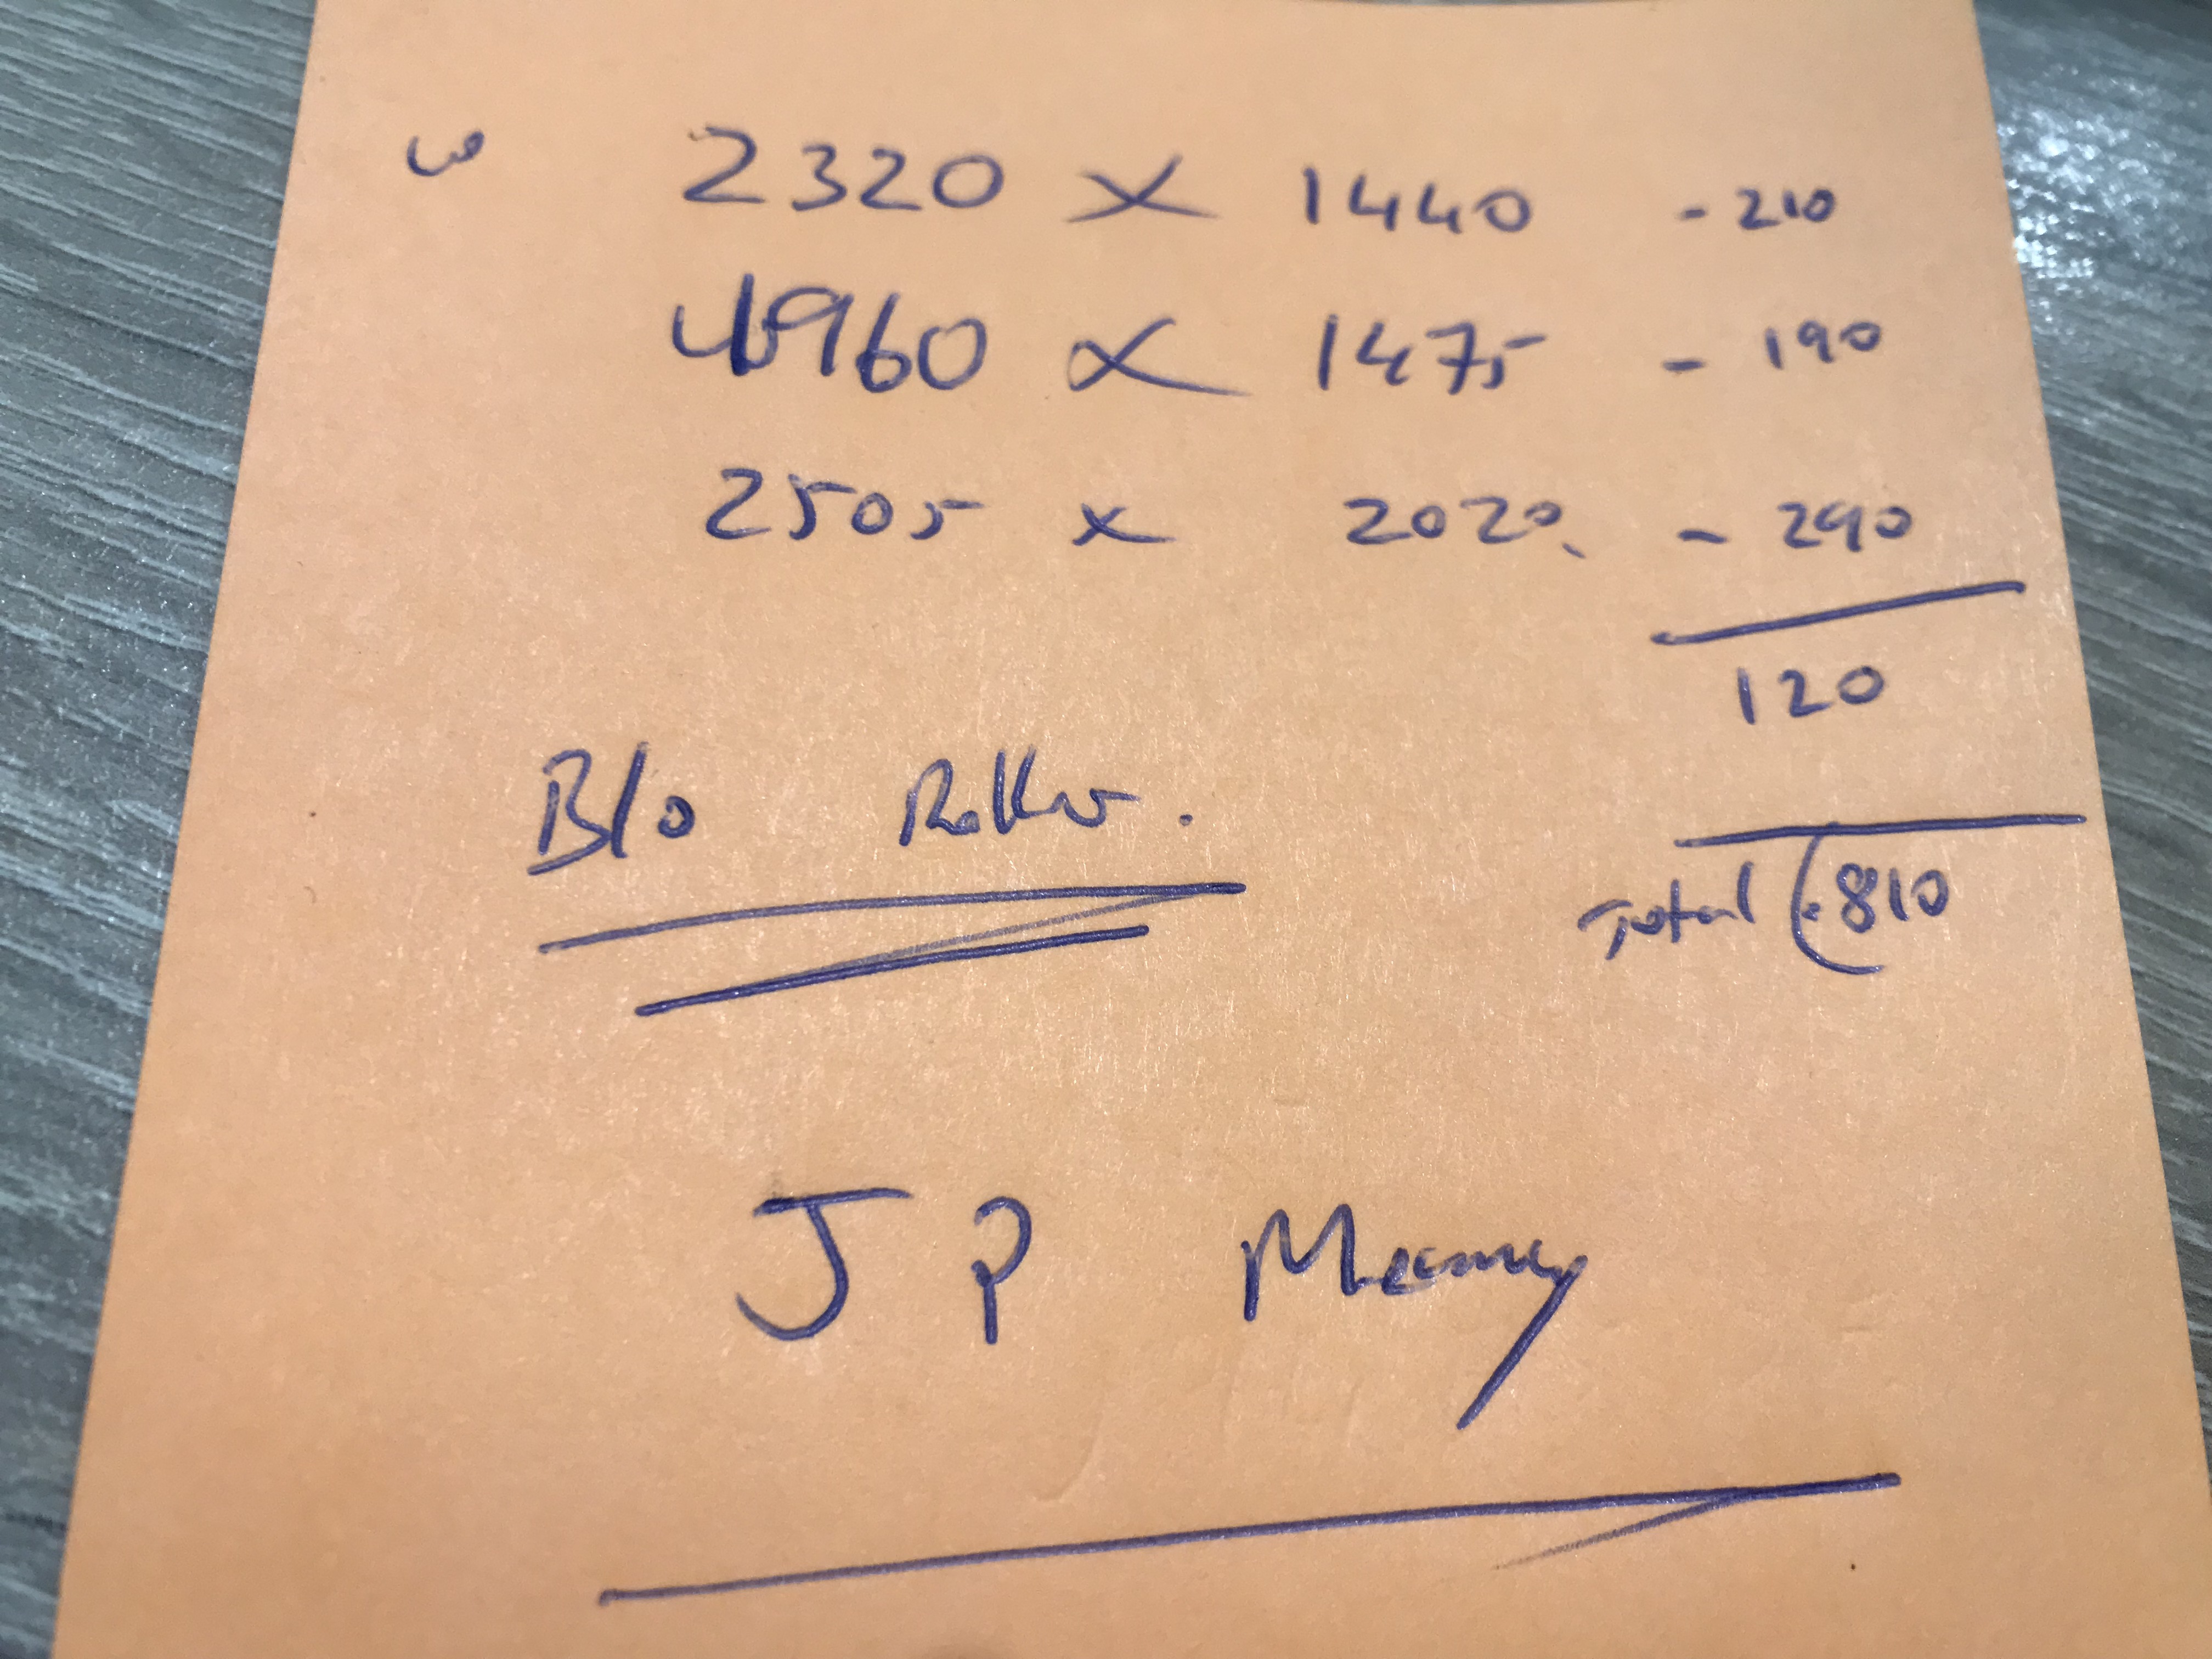 w 2320 x 1440 - 210
1960 x 1475 - 190
2505 x 2020. - 290
120
B/o Roller.
Total (810
J P